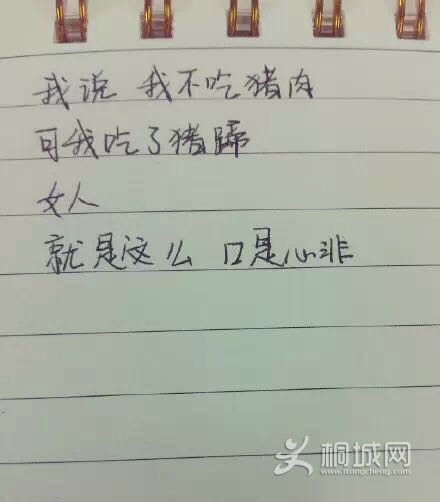 我说 我不吃猪肉
可我吃了猪蹄
女人
就是这么 口是心非
桐城网
itongcheng.com